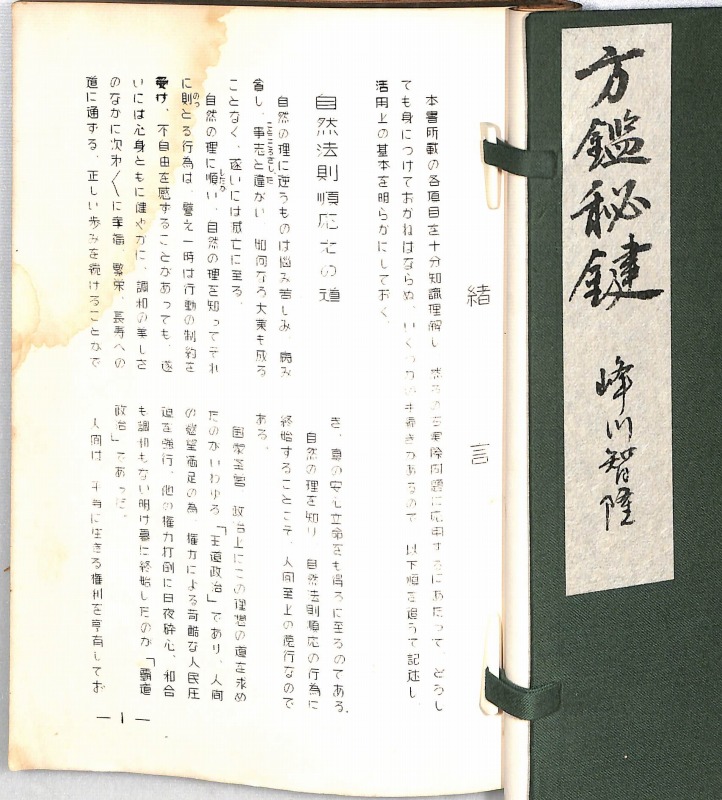 方鑑秘鍵
峰川智隆
緒言
本書所載の各項目を十分知識理解し
実際問題に応用するにあたって、どうし
ても身につけておかねばならぬ、いくつかの
があるので
以下順を追うて記述し、
活用上の基本を明らかにしておく。
自然法則順応えの道
自然の理に逆うものは悩み苦しみ、病み
省し、事志と違がい
如何なる大業も成る
ことなく、遂いには滅亡に至る。
自然の理に順い、自然の理を知ってそれ
に則とる行為は、譬え一時は行動の制約を
受け、不自由を感ずることがあっても、遂
いには心身ともに健やかに、調和の美しさ
のなかに次第〱に幸福、繁栄、長寿への
道に通ずる、正しい歩みを続けることがで
き、真の安心立命をも得るに至るのである。
自然の理を知り
自然法則順応の行為に
終始することこそ、人間至上の徳行なので
ある。
国家経営
政治上にこの理想の道を求め
たのがいわゆる「王道政治」であり、人間
の欲望満足の為、権力による苛酷な人民圧
迫を強行、他の権力打倒に日夜砕心、和合
も調和もない明け暮に終始したのが「覇道
政治」であった。
人間は
平等に生きる権利を享有してお
— 1 —